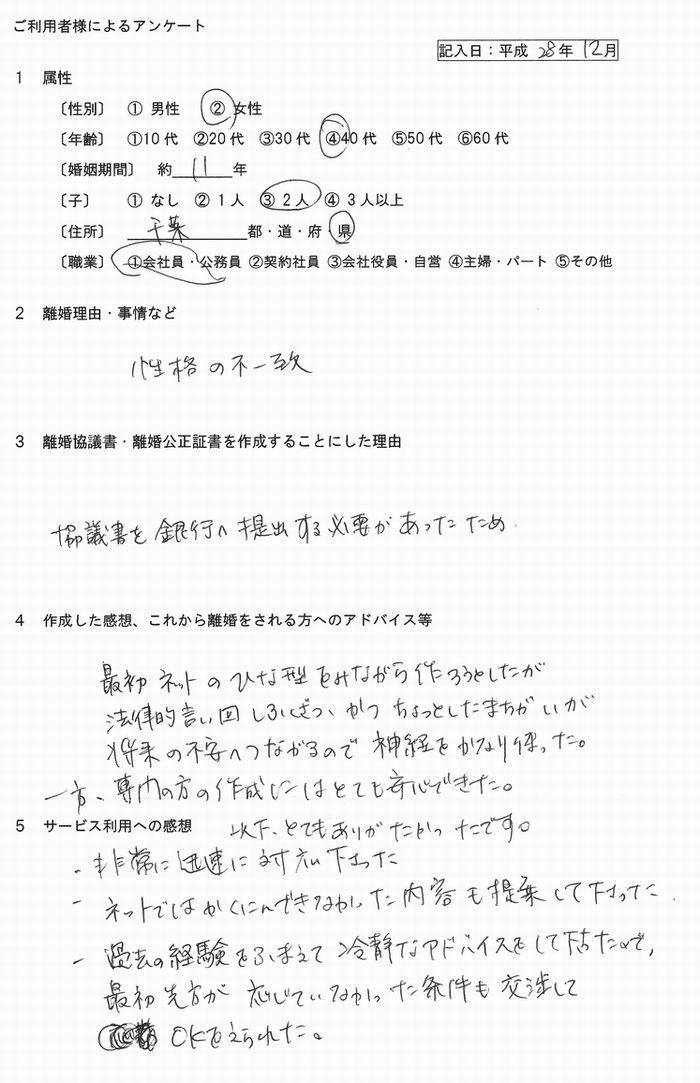 ご利用者様によるアンケート
記入日：平成 28年 12月
1 属性
〔性別〕 ① 男性 ② 女性
〔年齢〕 ①10代 ②20代 ③30代 ④40代 ⑤50代 ⑥60代
〔婚姻期間〕 約 11 年
〔子〕 ① なし ② 1人 ③ 2人 ④ 3人以上
〔住所〕 千葉 都・道・府・県
〔職業〕 ①会社員・公務員 ②契約社員 ③会社役員・自営 ④主婦・パート ⑤その他
2 離婚理由・事情など
性格の不一致
3 離婚協議書・離婚公正証書を作成することにした理由
協議書を銀行へ提出する必要があったため．
4 作成した感想、これから離婚をされる方へのアドバイス等
最初ネットのひな型をみながら作ろうとしたが
法律的言い回しふくざつ、かつちょっとしたまちがいが
将来の不安へつながるので神経をかなり使った。
一方、専門の方の作成にはとても安心できた。
5 サービス利用への感想 以下、とてもありがたかったです。
- 非常に迅速に対応下さった
- ネットではかくにんできなかった内容も提案して下さった．
- 過去の経験をふまえて冷静なアドバイスをして下さったので，
最初先方が応じていなかった条件も交渉して
OKをえられた。